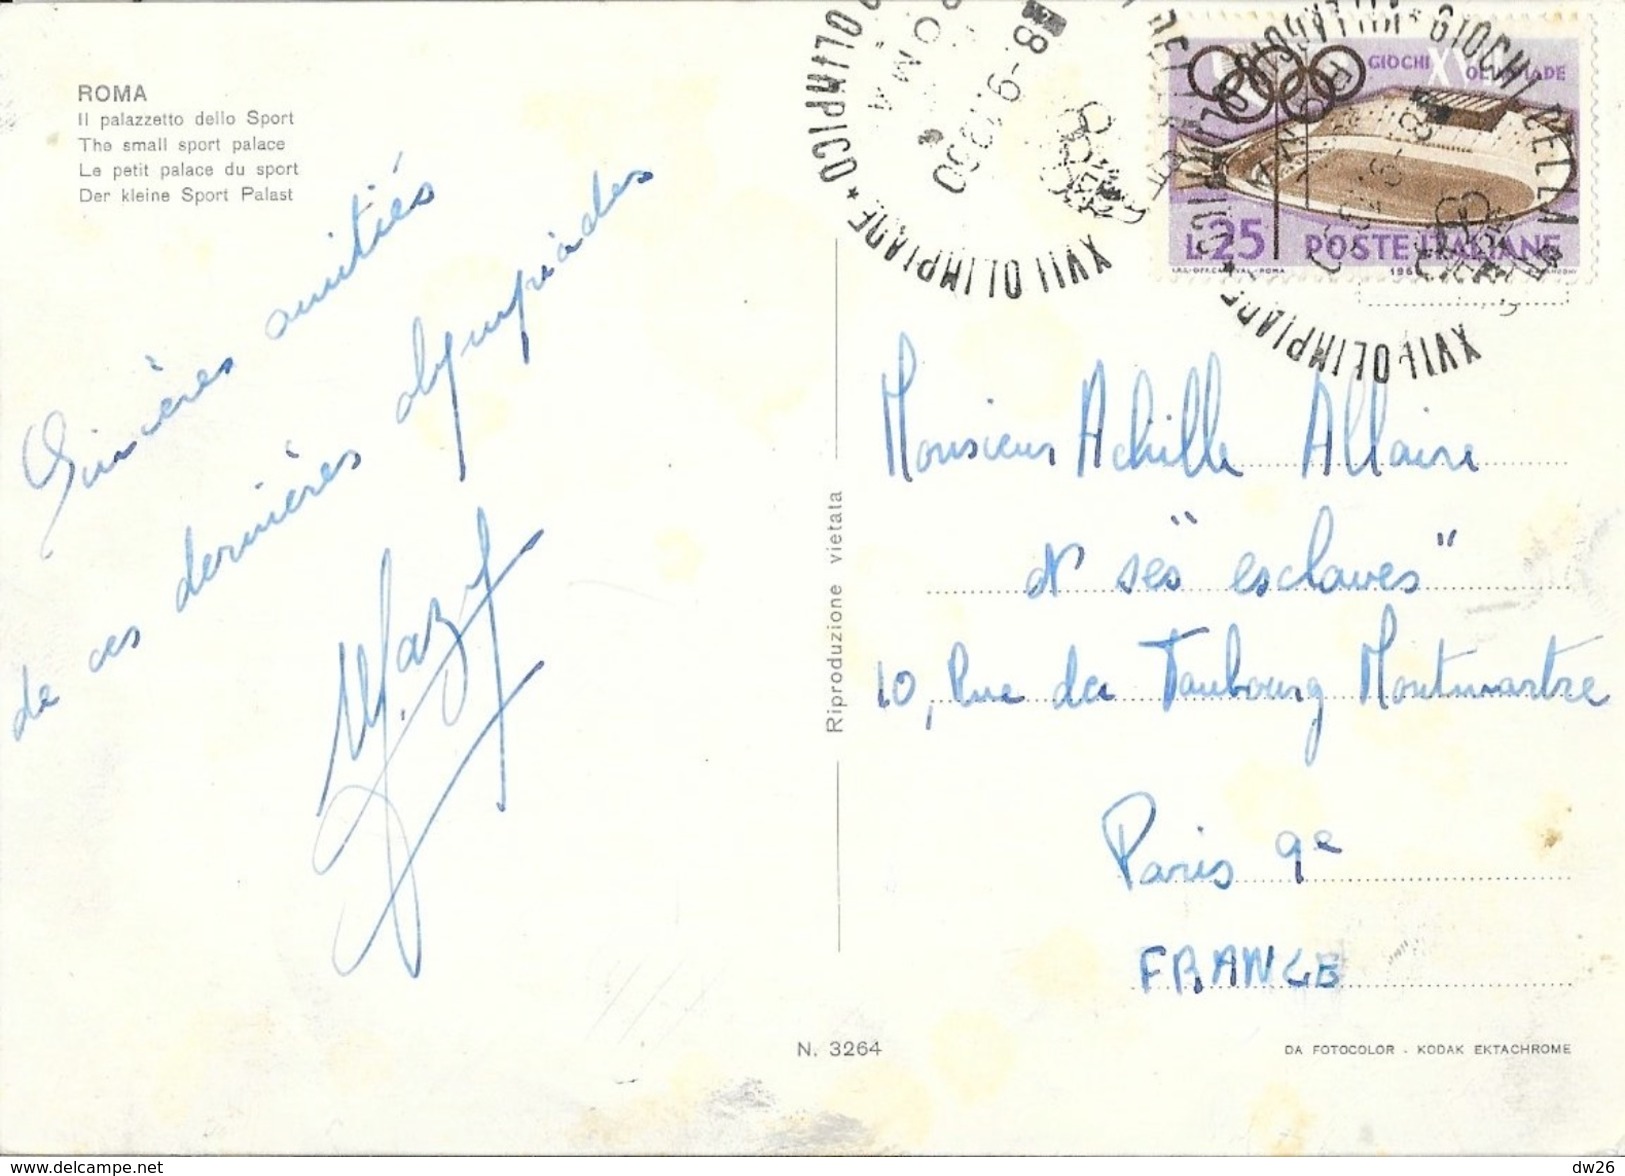 ROMA
Il palazzetto dello Sport
The small sport palace
Le petit palace du sport
Der kleine Sport Palast
Sincères amitiés
de ces dernières olympiades
Riproduzione vietata
N. 3264
XVII OLIMPIADE * VILLAGGIO OLIMPICO
ROMA
GIOCHI DELLA XVII OLIMPIADE *
GIOCHI XVII OLIMPIADE
L.25 POSTE ITALIANE
I.P.S.-OFF.CARVAL.-ROMA
Monsieur Achille Allaire
& ses "esclaves"
10, Rue du Faubourg Montmartre
Paris 9e
FRANCE
DA FOTOCOLOR - KODAK EKTACHROME
dw26